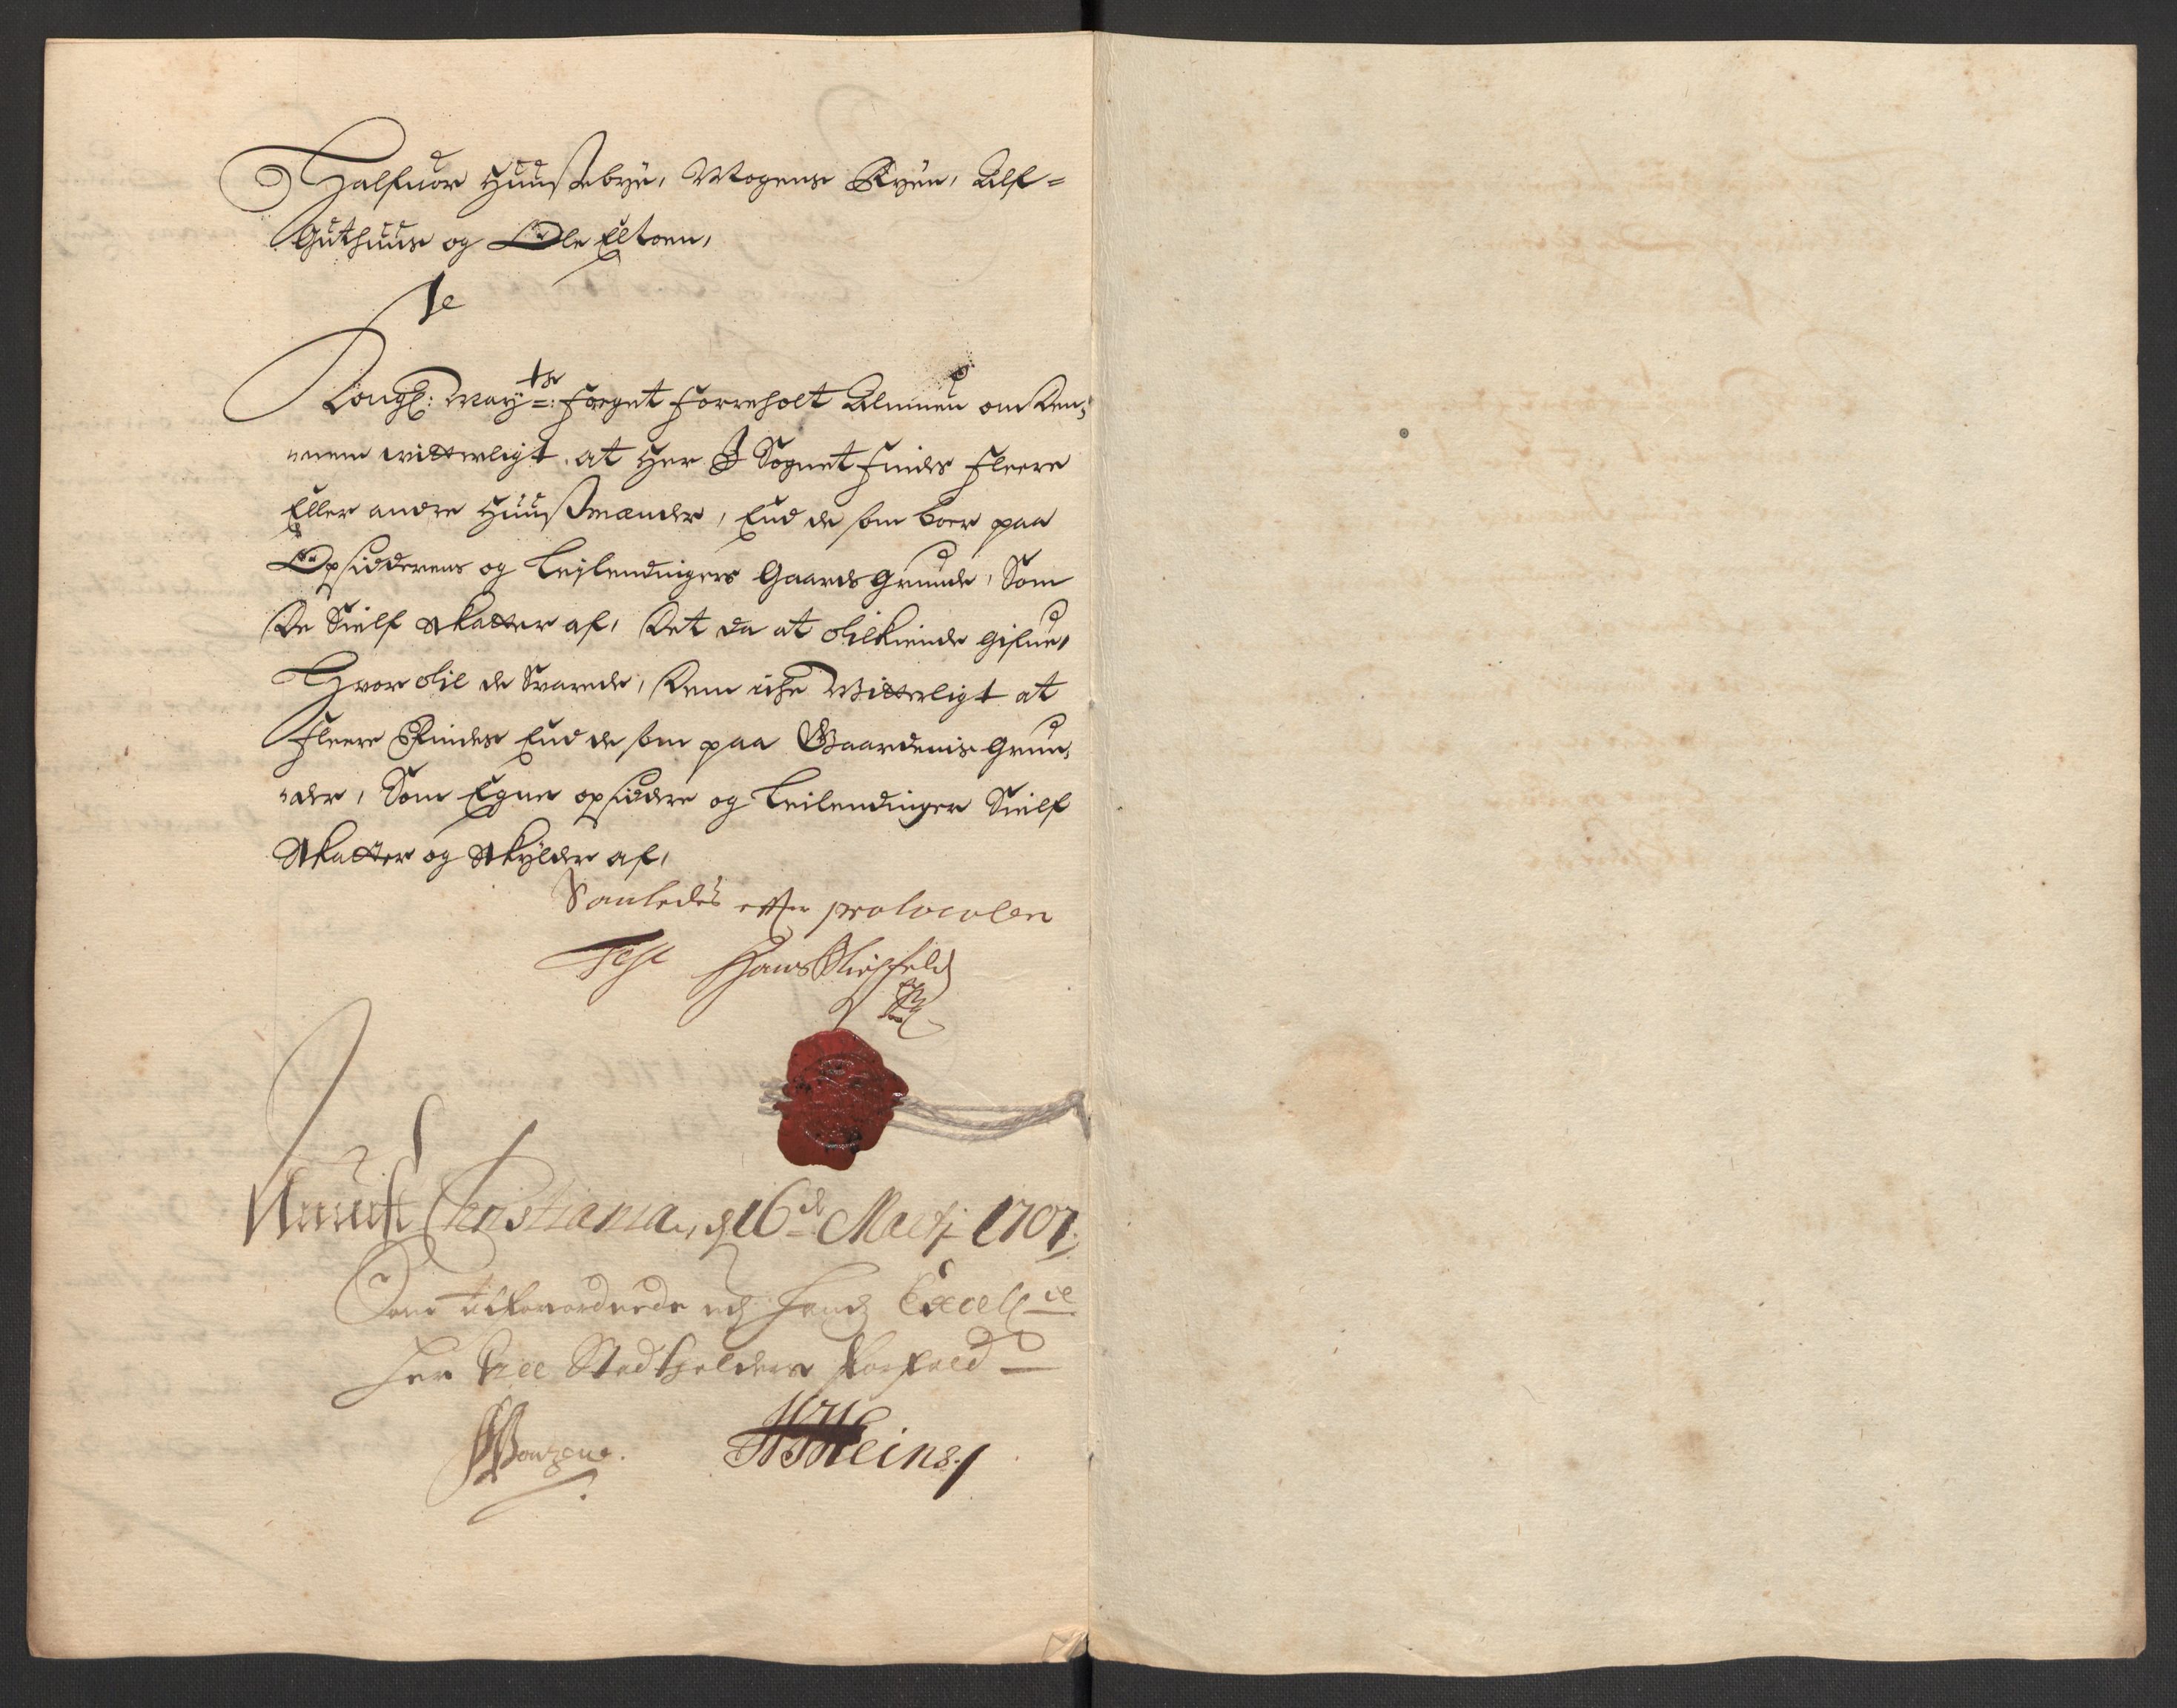 Halfuor Huusebye, Mogens Ryen, Alf=
Guthuus og Ole Eltoen,
Kongl: May:ts Foeget Forreholt Almuen om Dem,
nem witterligt, at Her I Sognet Findes Fleere
Eller andre Huusmænder, End de som boer paa
Opsidderens og Leylendingers Gaards Grunde, Som
De Sielf skatter af, Det da at tilkiende gifue,
Hvor til de Svarede, Dem iche Witterligt at
Fleere Findes End de som paa Gaardenis Grun,
der, Som Egne opsiddere og Leilendinger Sielf
Skatter og Skylder af,
Saaledes efter protocolen
Test Hans
Christiania, d 16de Martj 1707,
Som tilforordnede udj hands Excell:ce
Her Vice Stadtholders Forfald
HHeins